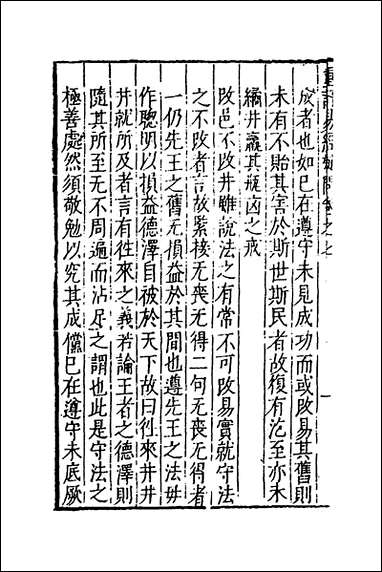 重訂易經疑問卷之七
成者也如已在遵守未見成功而或改易其舊則
未有不貽其害於斯世斯民者故復有汔至亦未
繘井羸其瓶凶之戒
改邑不改井雖說法之有常不可改易實就守法
之不改者言故緊接无喪无得二句无喪无得者
一仍先王之舊无損益於其間也遵先王之法毋
作聰明以損益德澤自被於天下故曰徃來井井
井就所及者言有徃來之義若論王者之德澤則
隨其所至无不周遍而沾足之謂也此是守法之
極善處然須敬勉以究其成儻已在遵守未底厥